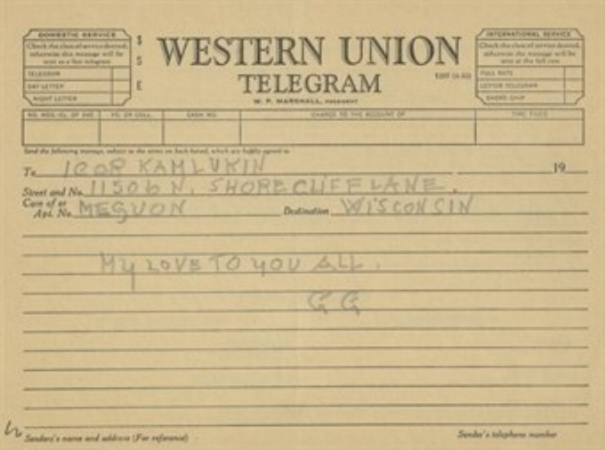 DOMESTIC SERVICE
Check the class of service desired,
otherwise this message will be
sent as a fast telegram
TELEGRAM
DAY LETTER
NIGHT LETTER
$
S
E
WESTERN UNION
TELEGRAM
W. P. MARSHALL, PRESIDENT
INTERNATIONAL SERVICE
Check the class of service desired,
otherwise this message will be
sent at the full rate
FULL RATE
LETTER TELEGRAM
SHORE-SHIP
NO. WDS.-CL. OF SVC. PD. OR COLL. CASH NO. CHARGE TO THE ACCOUNT OF TIME FILED
Send the following message, subject to the terms on back hereof, which are hereby agreed to
To IGOR KAMLUKIN 19
Street and No. 11506 N. SHORECLIFF LANE.
Care of or
Apt. No. MEQUON Destination WISCONSIN
MY LOVE TO YOU ALL.
GG
Sender's name and address (For reference) Sender's telephone number